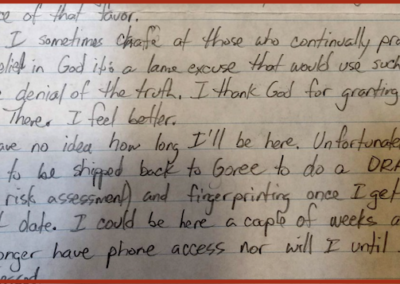 ce of that favor.
I sometimes chafe at those who continually pro
elief in God it's a lame excuse that would use such
e denial of the truth. I thank God for granting
There. I feel better.
ave no idea how long I'll be here. Unfortunate
to be shipped back to Goree to do a DRA
risk assessment) and fingerprinting once I get
date. I could be here a cople of weeks a
onger have phone access nor will I until